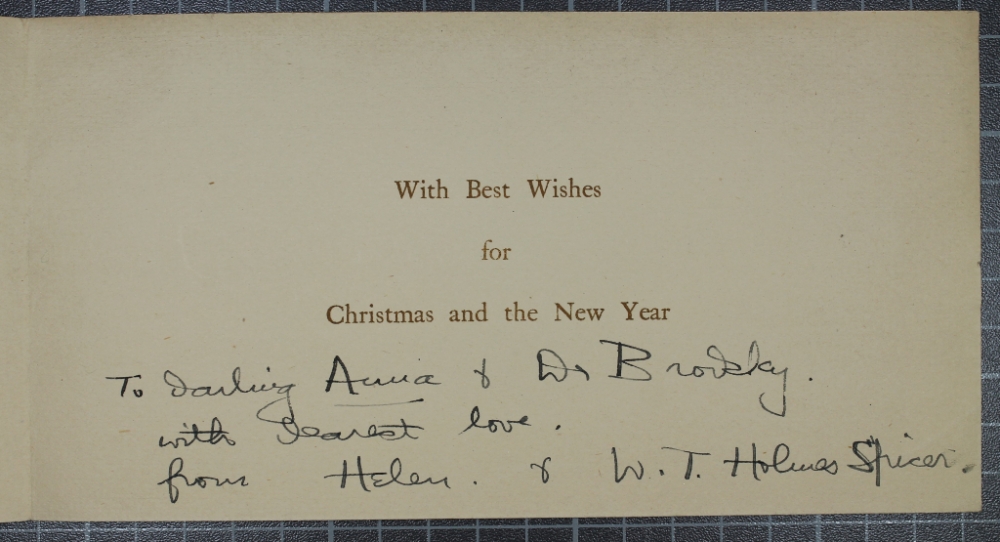 With Best Wishes
for
Christmas and the New Year
To darling Anna & Dr Brodsky.
with dearest love.
from Helen. & W. T. Holmes Spicer.